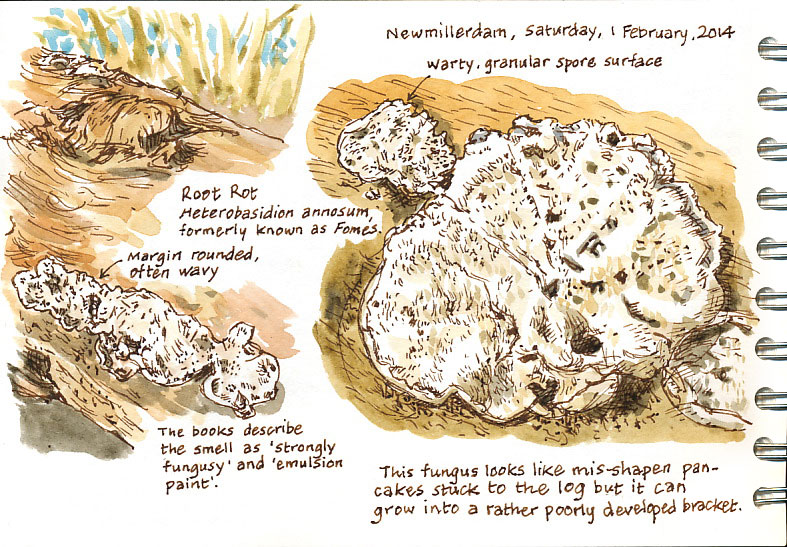 Newmillerdam, Saturday, 1 February, 2014
warty, granular spore surface
Root Rot
Heterobasidion annosum,
formerly known as Fomes.
Margin rounded,
often wavy
The books describe
the smell as 'strongly
fungusy' and 'emulsion
paint'.
This fungus looks like mis-shapen pan-
cakes stuck to the log but it can
grow into a rather poorly developed bracket.